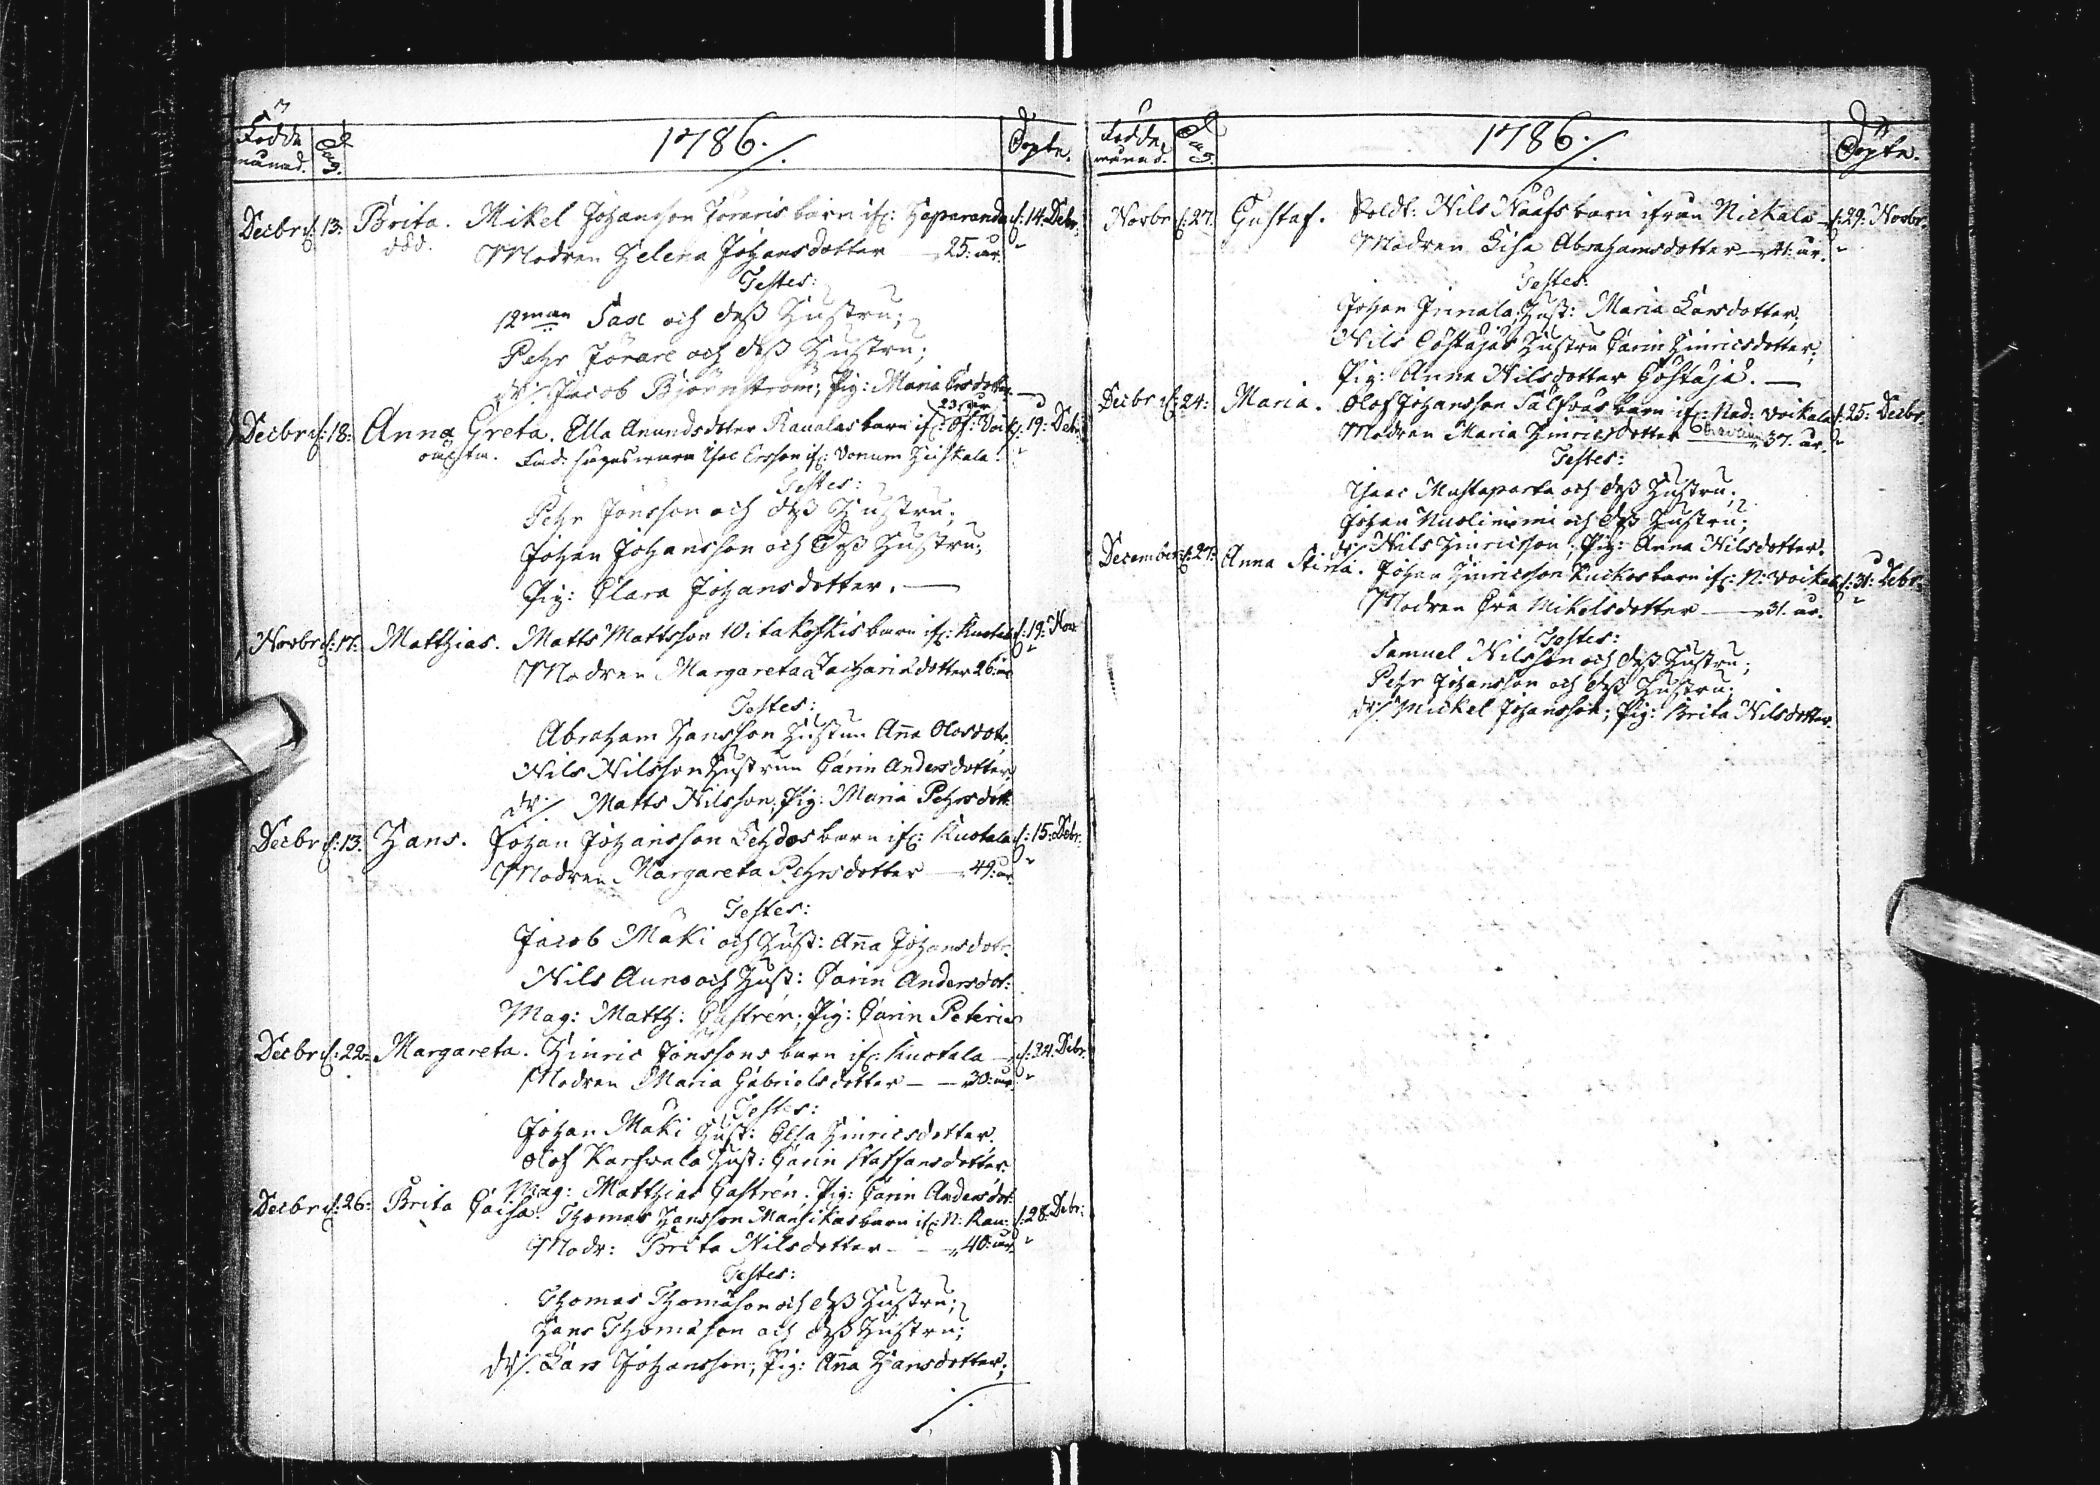 Födde månad. Dag. 1786. Döpte.
Decbr d: 13: Brita. Mikel Johansson Joraris barn ifr: Haparanda d: 14. Debr.
död. Modren Helena Johansdotter — 25: år.
Testes:
12man Sax och dess Hustru;
Pehr Jörare och dess Hustru;
dr/. Jacob Björnström; Pig: Maria Ersdotter —
23 år
Decbr d: 18: Anna Greta. Ella Anundsdoter Raualas barn ifr: Öf: Voi d: 19: Debr:
oächta. Isac Ersson ifr:
Testes:
Pehr Jönsson och dess Hustru;
Johan Johansson och dess Hustru;
Pig: Clara Johansdotter. —
Novbr d: 17: Matthias. Matts Mattsson Witakoskis barn ifr: Kuotala d: 19: Nov
Modren Margareta Zachariædotter 26: år
Testes:
Abraham Hansson Hustrun Anna Olosdotr.
Nils Nilsson Hustrun Carin Andersdotter,
dr/. Matts Nilsson, Pig: Maria Pehrsdott:
Decbr d: 13. Hans. Johan Johansson Lehdos barn ifr: Kuotala d: 15: Debr:
Modren Margareta Pehrsdotter — 49: år.
Testes:
Jacob Mäki och Hust: Anna Johansdotr.
Nils Auno och Hust: Carin Andersdot:
Mag: Matth: Castrén; Pig: Carin Peteri
Decbr d: 22: Margareta. Hinric Jönssons barn ifr: Kuotala — d: 24. Debr.
Modren Maria Gabrielsdotter — — 30: år.
Testes:
Johan Mäki Hust: Elsa Hinricsdotter.
Olof Karhvala Hust: Carin Staffansdotter.
Mag: Matthias Castrén. Pig: Carin Andersdot:
Decbr d: 26: Brita Caisa. Thomas Hansson Mansikas barn ifr: N: Rau: d: 28. Debr:
Modr: Brita Nilsdotter — — 40: år.
Testes:
Thomas Thomasson och dess Hustru;
Hans Thomasson och dess Hustru;
dr/. Lars Johansson; Pig: Anna Hansdotter;
Födde månad. Dag. 1786. Döpte.
Novbr d: 27. Gustaf. Soldt: Nils Naafs barn ifrån Nickala d: 29: Novbr.
Modren Lisa Abrahamsdotter — 41: år.
Testes:
Johan Innala Hust: Maria Larsdotter,
Nils Costajas Hustru Carin Hinricsdotter,
Pig: Anna Nilsdotter Costaja. —
Decbr d: 24: Maria. Olof Johansson barn ifr: Ned: Voikala d: 25: Decbr.
Modren Maria Hinricsdotter 37. år.
Testes:
Isaac Mustaparta och dess Hustru.
Johan Nuoliniemi och dess Hustru;
dr/. Nils Hinricsson; Pig: Anna Nilsdotter.
December d: 27: Anna Stina. Johan Hinricsson Kuckos barn ifr: N: Voikala d: 31: Debr.
Modren Eva Mikelsdotter — 31. år.
Testes:
Samuel Nilsson och dess Hustru;
Pehr Johansson och dess Hustru;
dr/. Mickel Johansson; Pig: Brita Nilsdotter.